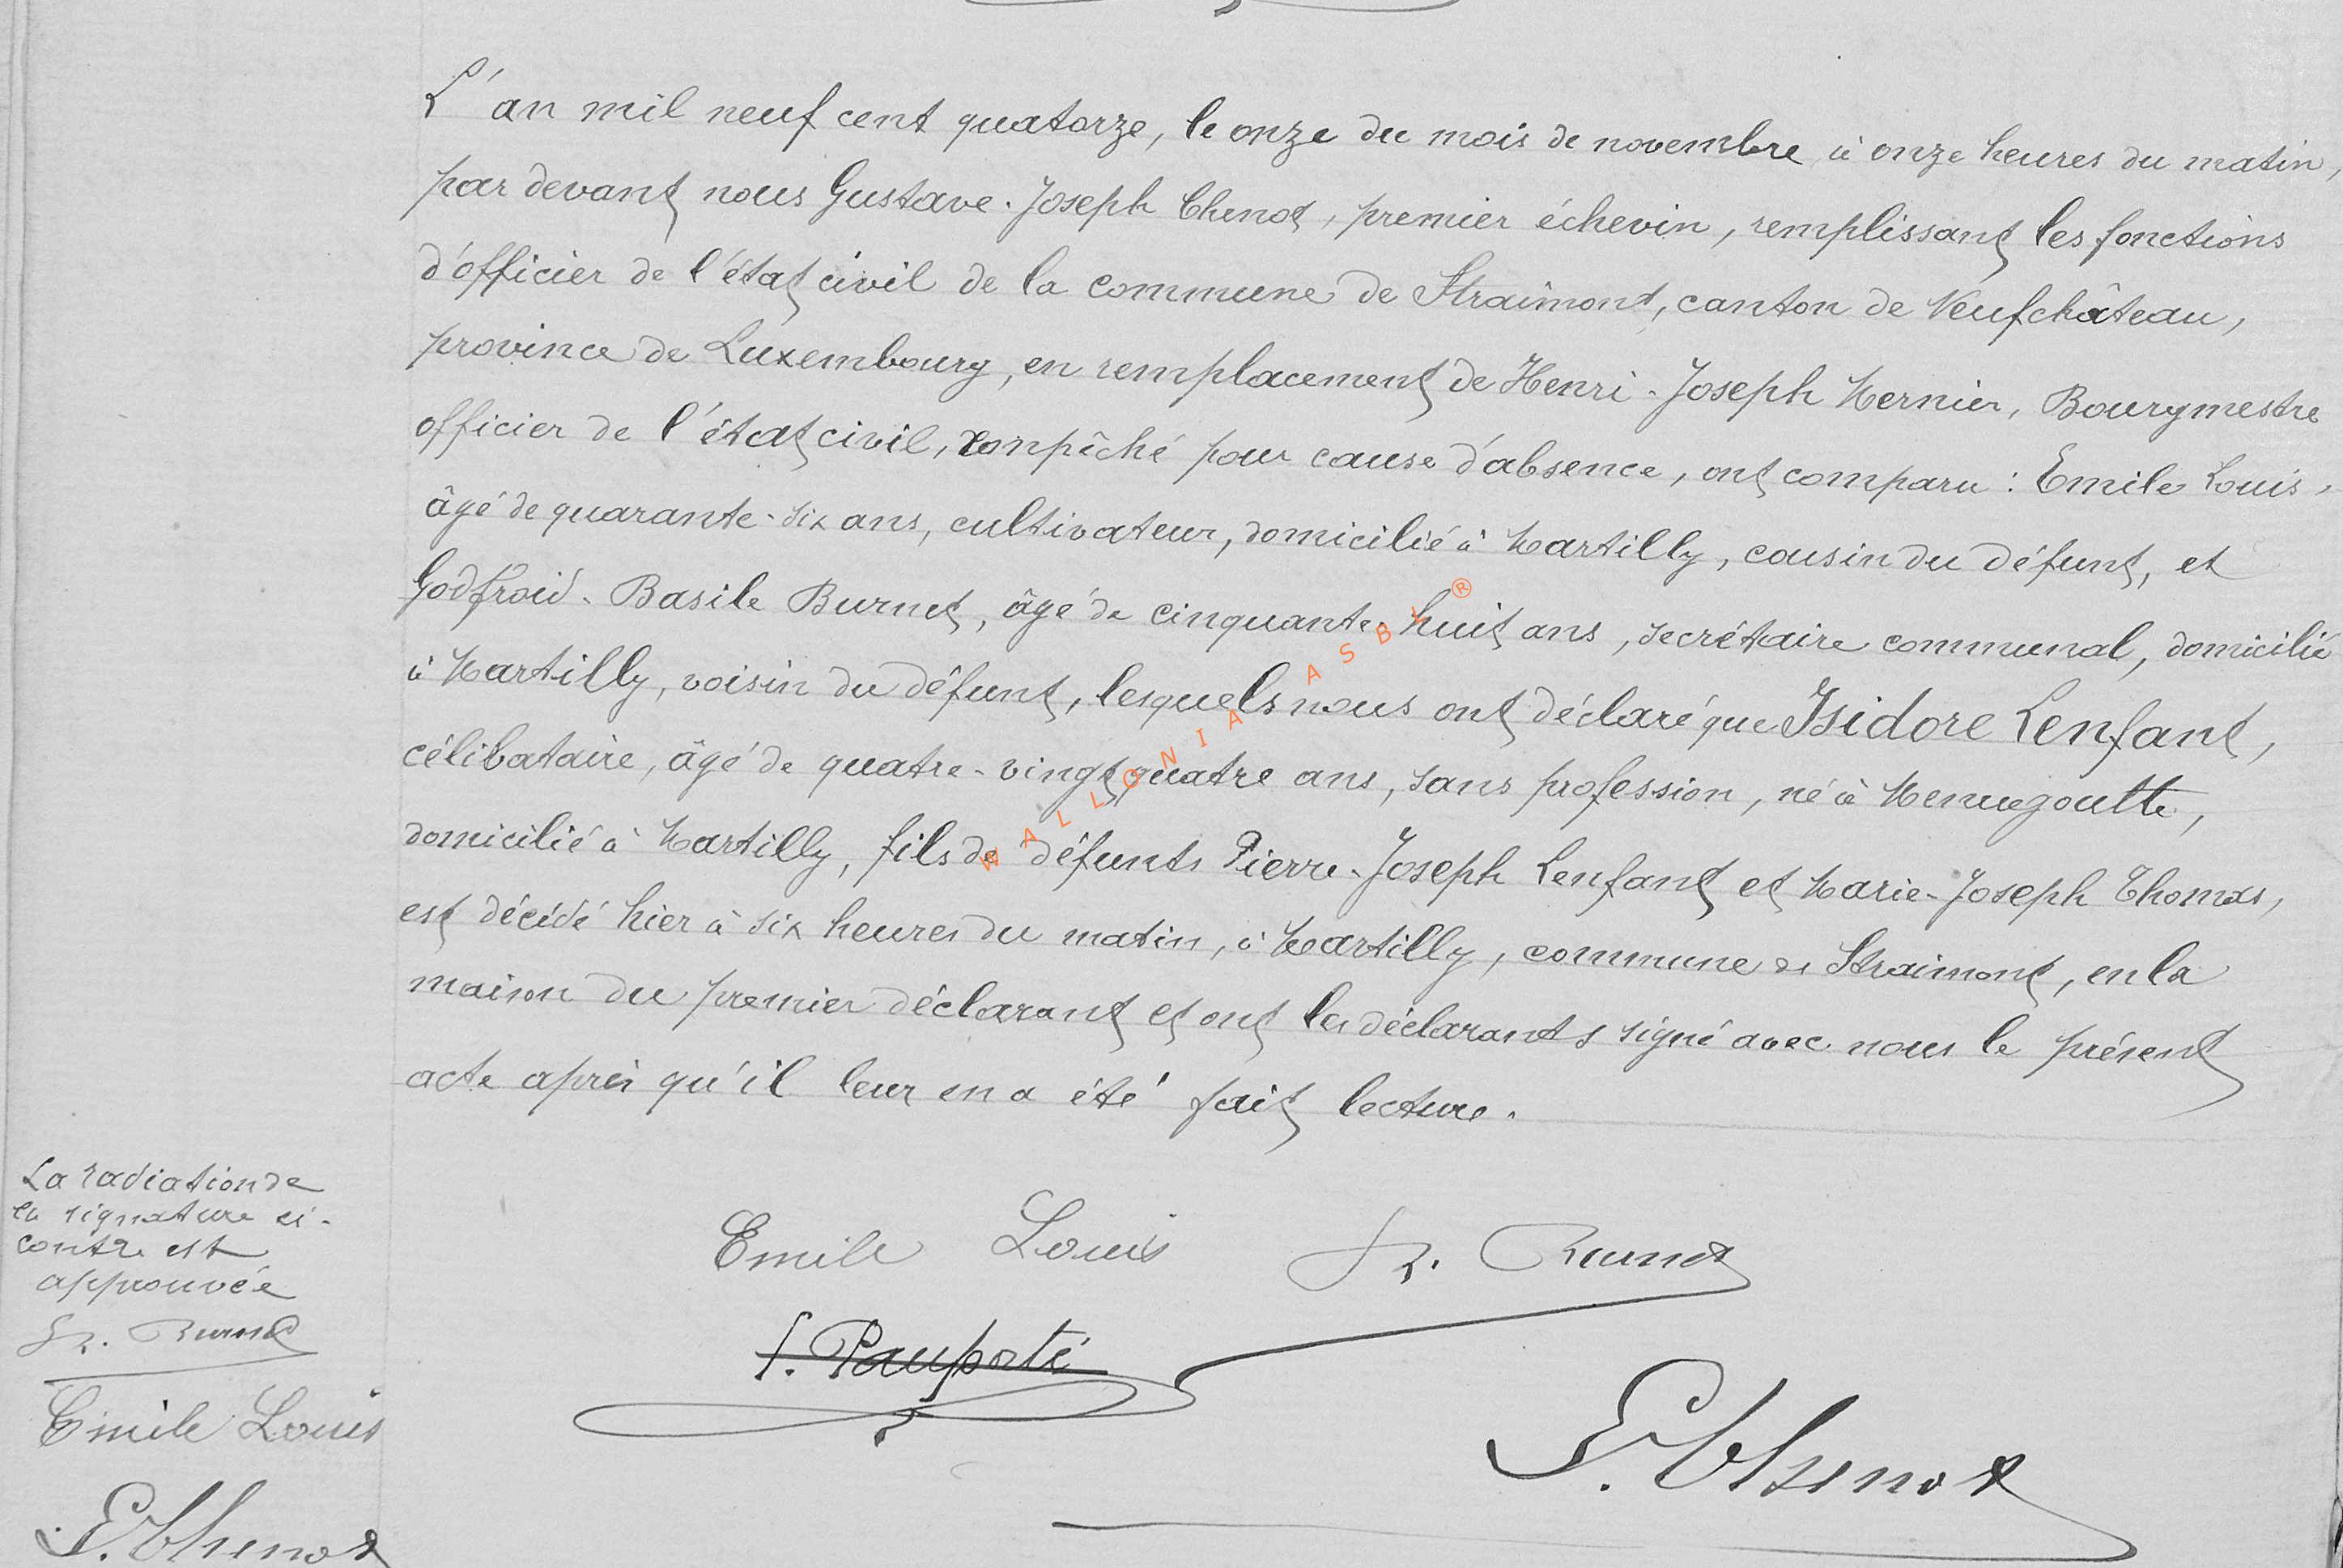 L'an mil neuf cent quatorze, le onze du mois de novembre à onze heures du matin,
par devant nous Gustave-Joseph Chenot, premier échevin, remplissant les fonctions
d'officier de l'état civil de la commune de Straimont, canton de Neufchâteau,
province de Luxembourg, en remplacement de Henri-Joseph Mernier, Bourgmestre
officier de l'état civil, empêché pour cause d'absence, ont comparu : Emile Louis,
âgé de quarante-six ans, cultivateur, domicilié à Martilly, cousin du défunt, et
Godfroid-Basile Burnet, âgé de cinquante-huit ans, secrétaire communal, domicilié
à Martilly, voisin du défunt, lesquels nous ont déclaré que Isidore Lenfant,
célibataire, âgé de quatre-vingt quatre ans, sans profession, né à Menugoutte,
domicilié à Martilly, fils de défunts Pierre-Joseph Lenfant et Marie-Joseph Thomas,
est décédé hier à six heures du matin, à Martilly, commune de Straimont, en la
maison du premier déclarant et ont les déclarants signé avec nous le présent
acte après qu'il leur en a été fait lecture.
La radiation de
la signature ci-
contre est
approuvée
Burnet
Emile Louis
G. Chenot
Emile Louis Burnet
J. Pauporté
G. Chenot
WALLONIA ASBL ®